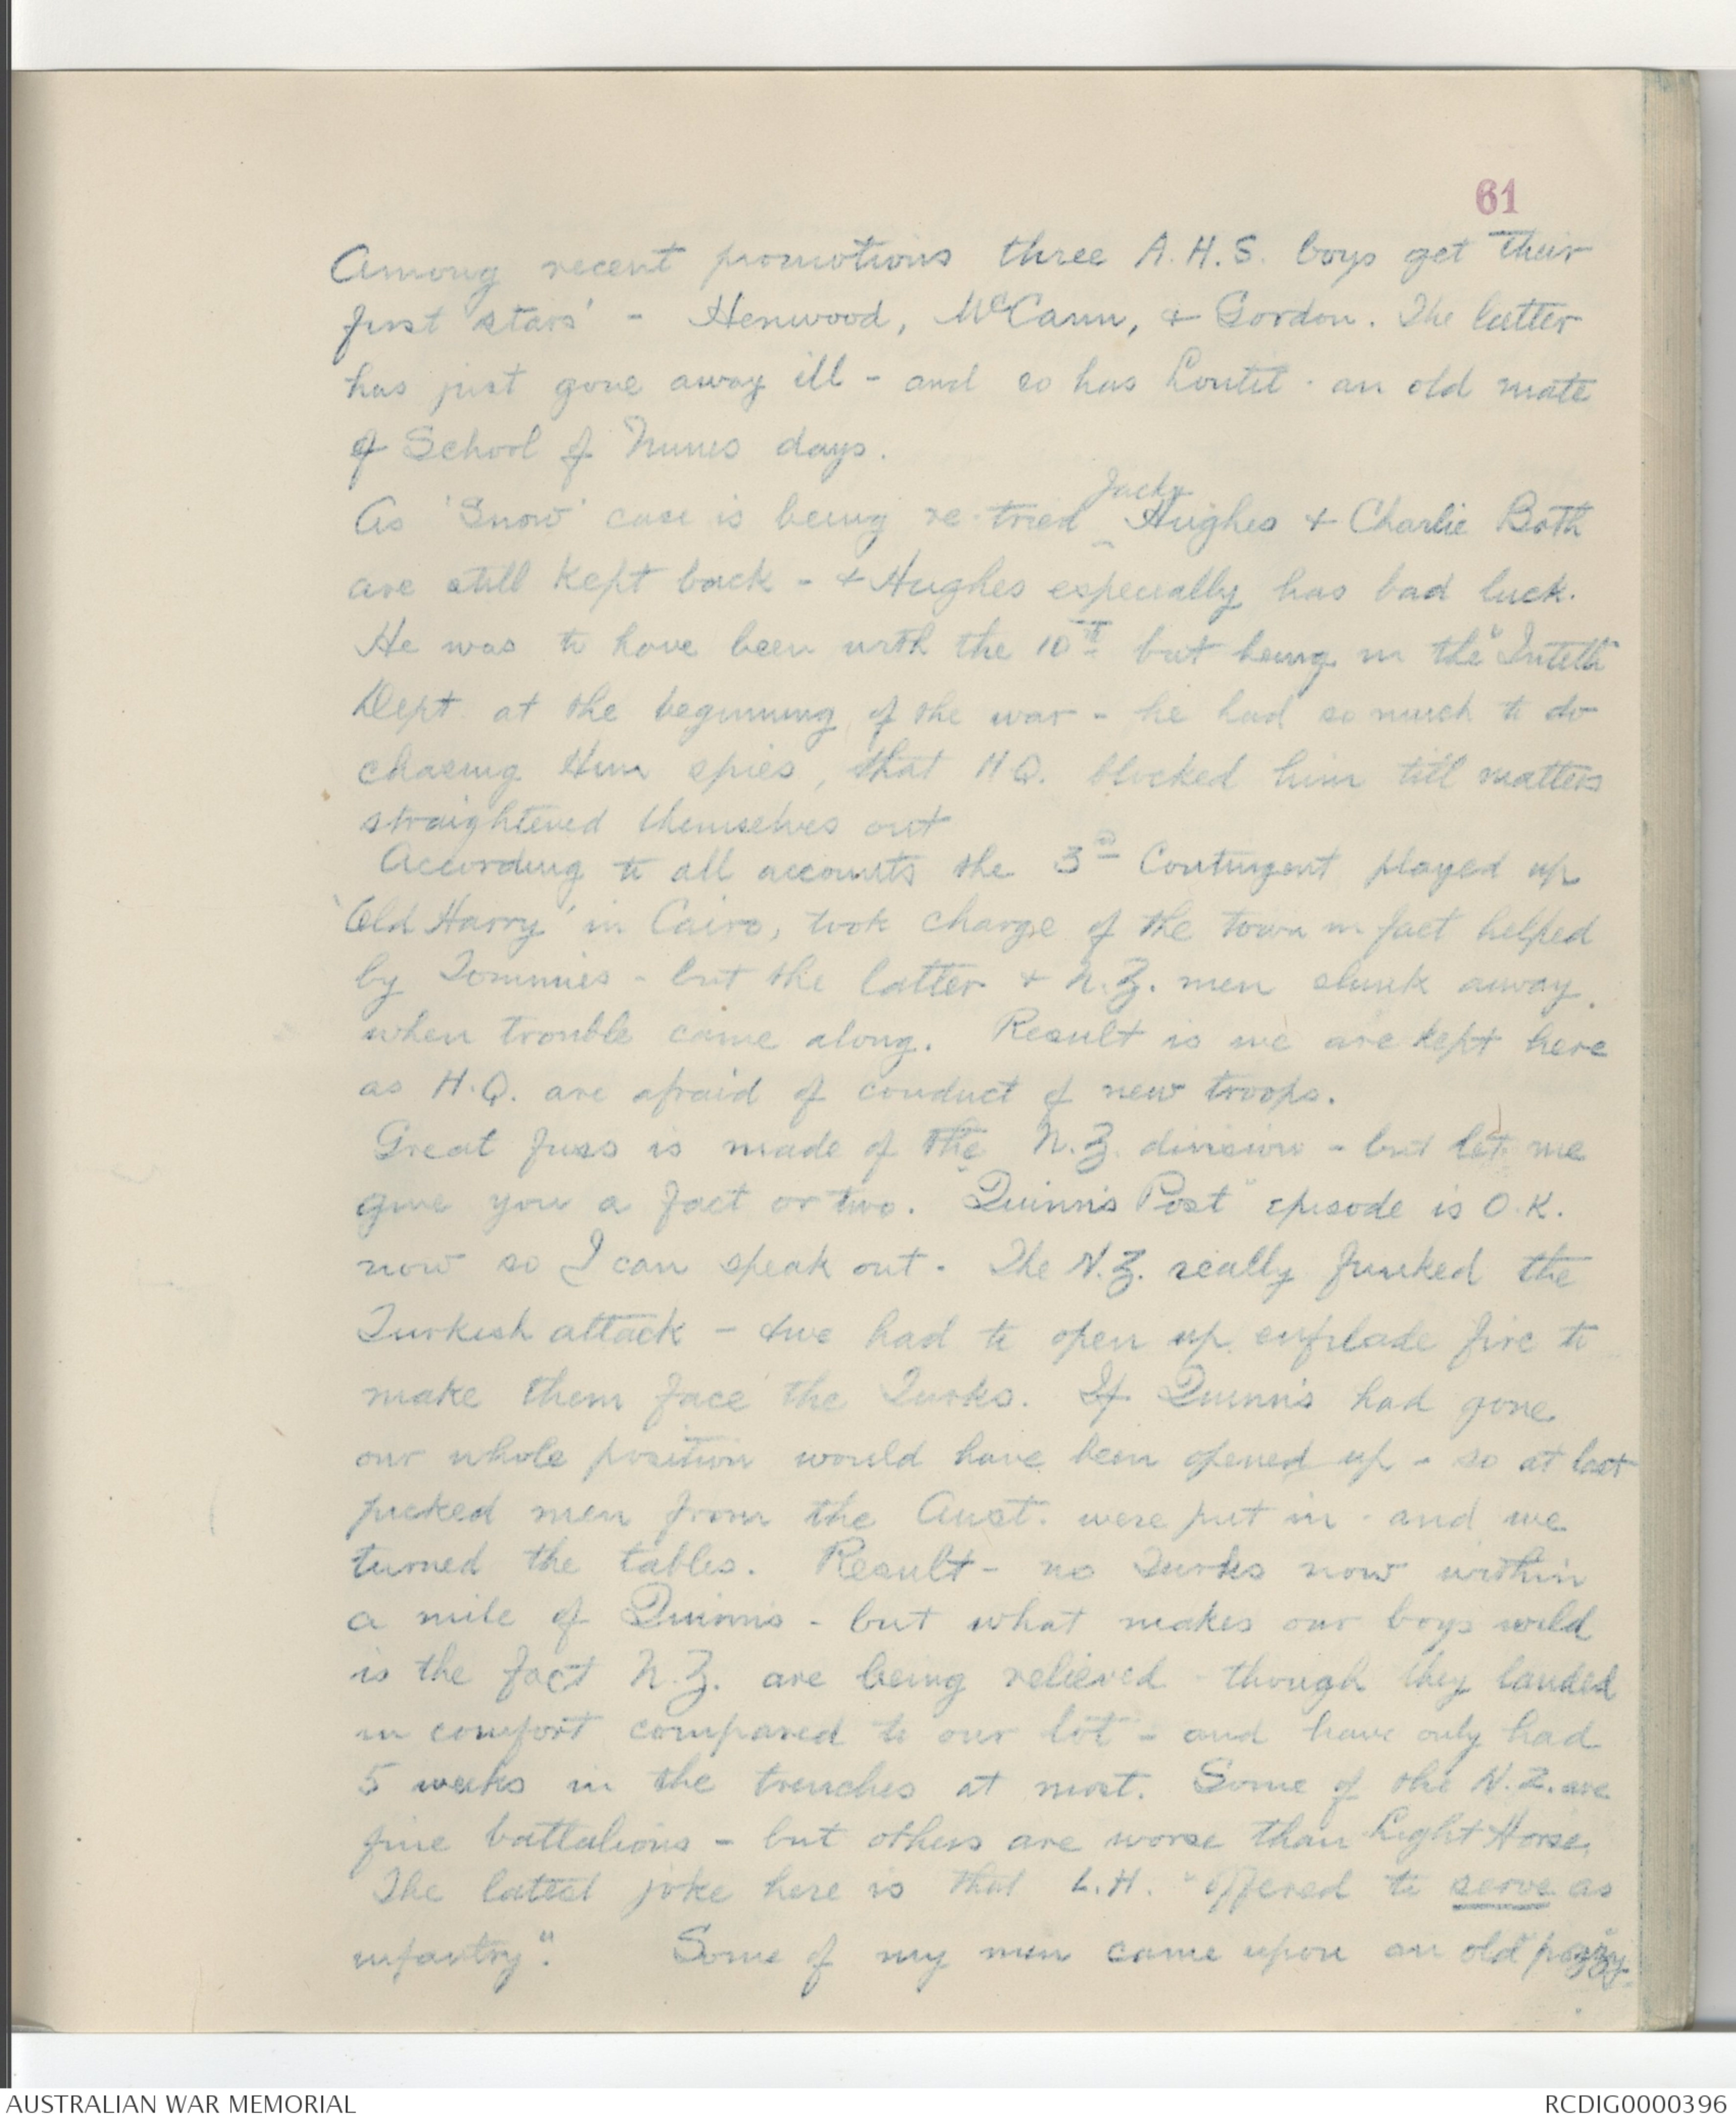 61
Among recent promotions three A.H.S. boys get their
first 'stars' - Henwood, McCann, & Gordon. The latter
has just gone away ill - and so has Loutit - an old mate
of School of Mines days.
As 'Snow' case is being re-tried Jacky Hughes & Charlie Both
are still kept back - & Hughes especially has bad luck.
He was to have been with the 10th but being in the "Intell"
Dept. at the beginning of the war - he had so much to do
chasing Hun spies, that H Q. blocked him till matters
straightened themselves out
According to all accounts the 3rd Contingent played up
'Old Harry' in Cairo, took charge of the town in fact helped
by Tommies - but the latter & N.Z. men slunk away
when trouble came along. Result is we are kept here
as H.Q. are afraid of conduct of new troops.
Great fuss is made of the N.Z. division - but let me
give you a fact or two. "Quinn's Post" episode is O.K.
now so I can speak out. The N.Z. really funked the
Turkish attack - & we had to open up enfilade fire to
make them face the Turks. If Quinn's had gone
our whole position would have been opened up - so at last
picked men from the Aust. were put in - and we
turned the tables. Result - no Turks now within
a mile of Quinns - but what makes our boys wild
is the fact N.Z. are being relieved - though they landed
in comfort compared to our lot - and have only had
5 weeks in the trenches at most. Some of the N.Z. are
fine battalions - but others are worse than Light Horse.
The latest joke here is that L.H. "offered to serve as
infantry". Some of my men came upon an old "pozzy"
AUSTRALIAN WAR MEMORIAL
RCDIG0000396